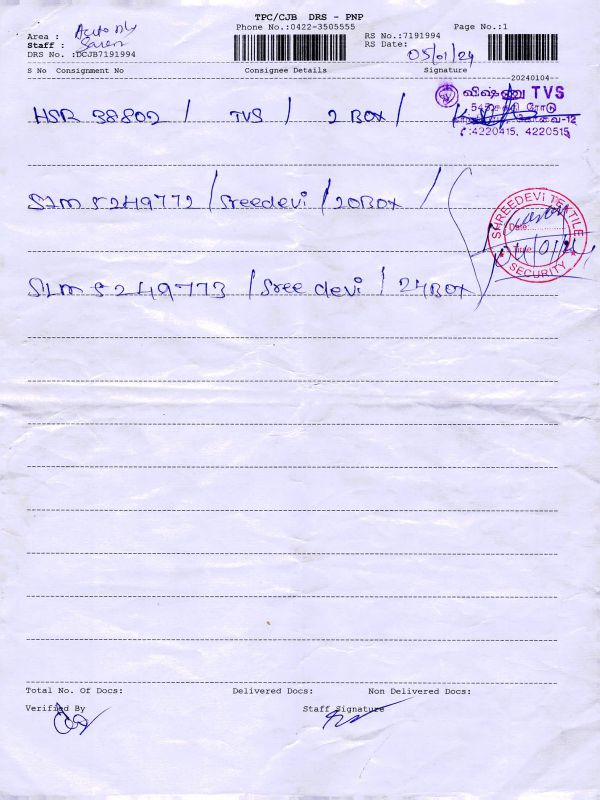 TPC/CJB DRS - PNP
Phone No.:0422-3505555
Page No.:1
Area : Auto Dly
RS No.:7191994
Staff :
RS Date: 05/01/24
DRS No. :DCJB7191994
S No Consignment No Consignee Details Signature
20240104
விஷ்ணு TVS
HSR 38802 / TVS / 2 BOX /
ரோடு
கோவை-12
:4220415, 4220515
SLM 5249772 / Sreedevi / 20Box /
SHREEDEVI TEXTILE
Date:
Time:
SECURITY
SLM 5249773 / Sree devi / 24Box
Total No. Of Docs: Delivered Docs: Non Delivered Docs:
Verified By Staff Signature